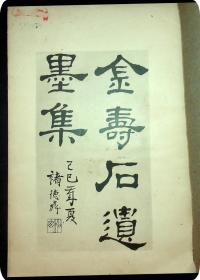 金壽石遺
墨集
乙巳夏
褚德彝